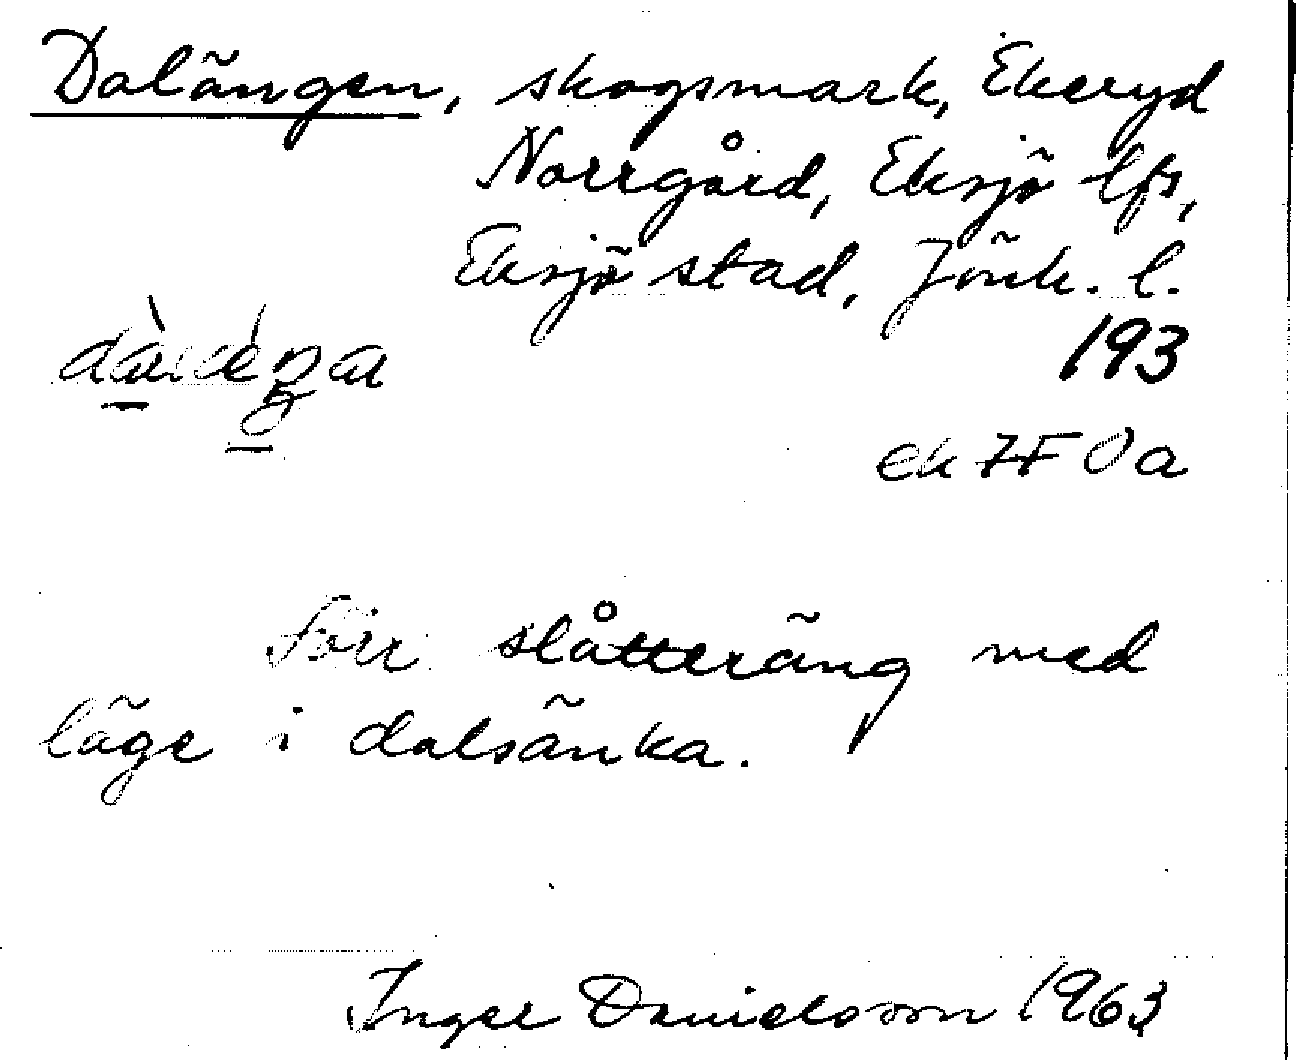 Dalängen, skogsmark, Ekeryd
Norrgård, Eksjö lfs,
Eksjö stad, Jönk. l.
193
ek 7F 0a
Förr slåtteräng med
läge i dalsänka.
Inger Danielsson 1963